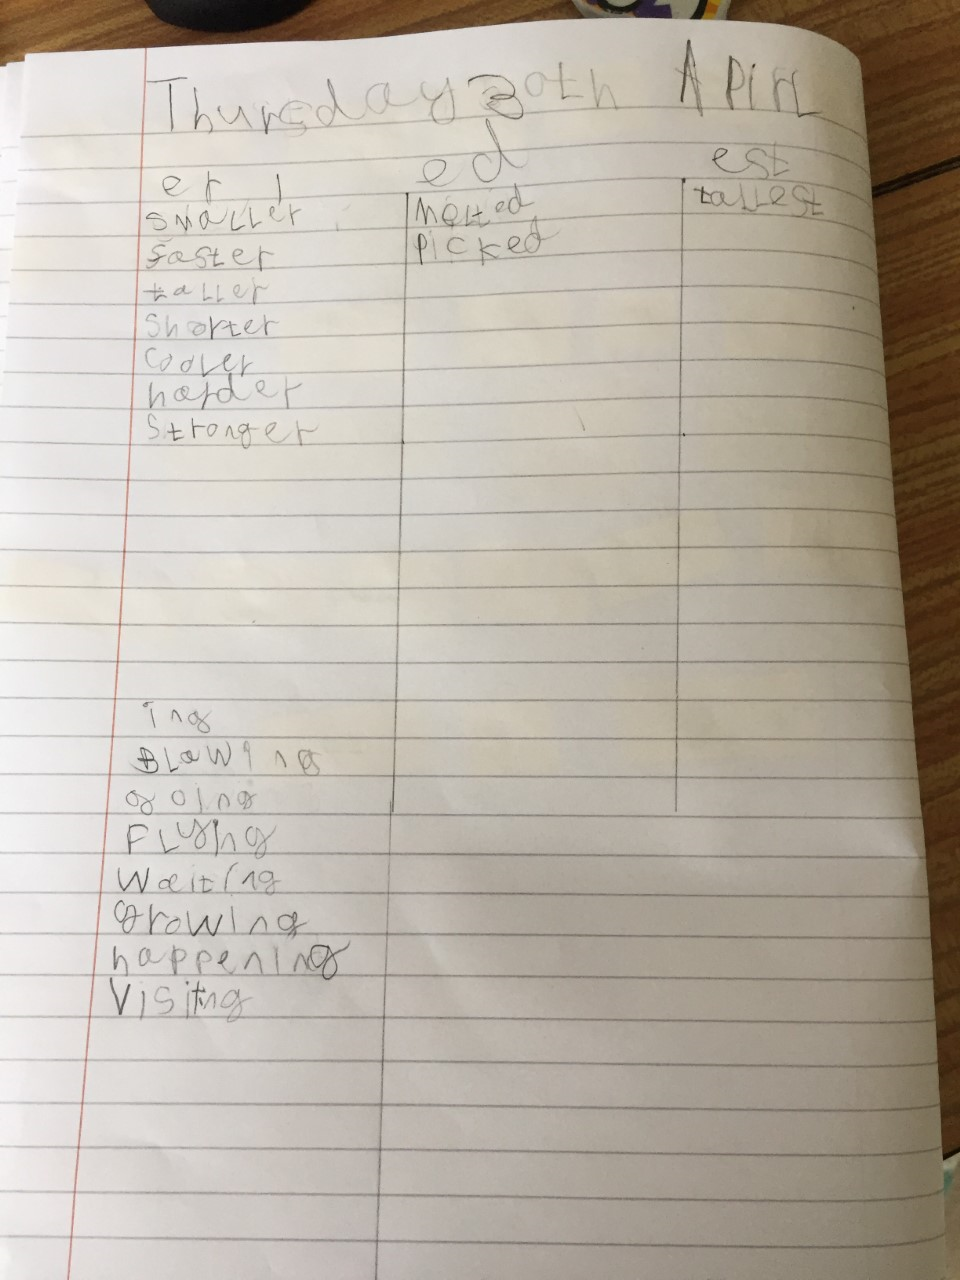 Thursday 30th APirL
er ed est
smaller melted tallest
faster picked
taller
Shorter
Cooler
harder
Stronger
ing
BLowing
going
FLying
Waiting
growing
happening
Visitng